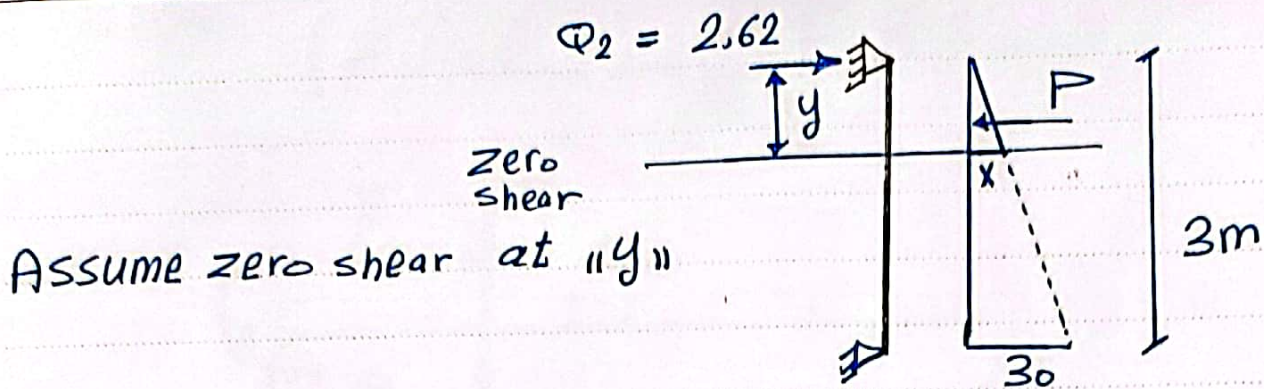 Q₂ = 2,62
y
P
zero
shear
x
Assume zero shear at "y"
3m
30